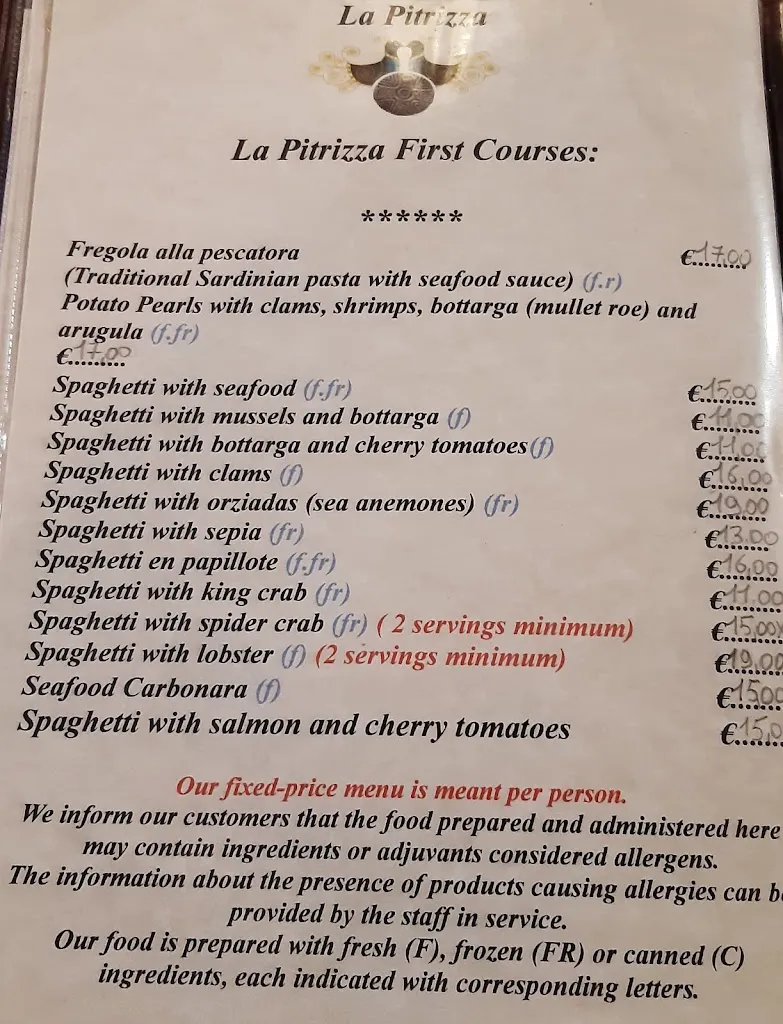 La Pitrizza
La Pitrizza First Courses:
******
Fregola alla pescatora €17,00
(Traditional Sardinian pasta with seafood sauce) (f.r)
Potato Pearls with clams, shrimps, bottarga (mullet roe) and
arugula (f.fr)
€17,00
Spaghetti with seafood (f.fr) €15,00
Spaghetti with mussels and bottarga (f) €11,00
Spaghetti with bottarga and cherry tomatoes(f) €11,00
Spaghetti with clams (f) €16,00
Spaghetti with orziadas (sea anemones) (fr) €19,00
Spaghetti with sepia (fr) €13.00
Spaghetti en papillote (f.fr) €16,00
Spaghetti with king crab (fr) €11.00
Spaghetti with spider crab (fr) ( 2 servings minimum) €15,00
Spaghetti with lobster (f) (2 servings minimum) €19,00
Seafood Carbonara (f) €1500
Spaghetti with salmon and cherry tomatoes €15,0
Our fixed-price menu is meant per person.
We inform our customers that the food prepared and administered here
may contain ingredients or adjuvants considered allergens.
The information about the presence of products causing allergies can b
provided by the staff in service.
Our food is prepared with fresh (F), frozen (FR) or canned (C)
ingredients, each indicated with corresponding letters.